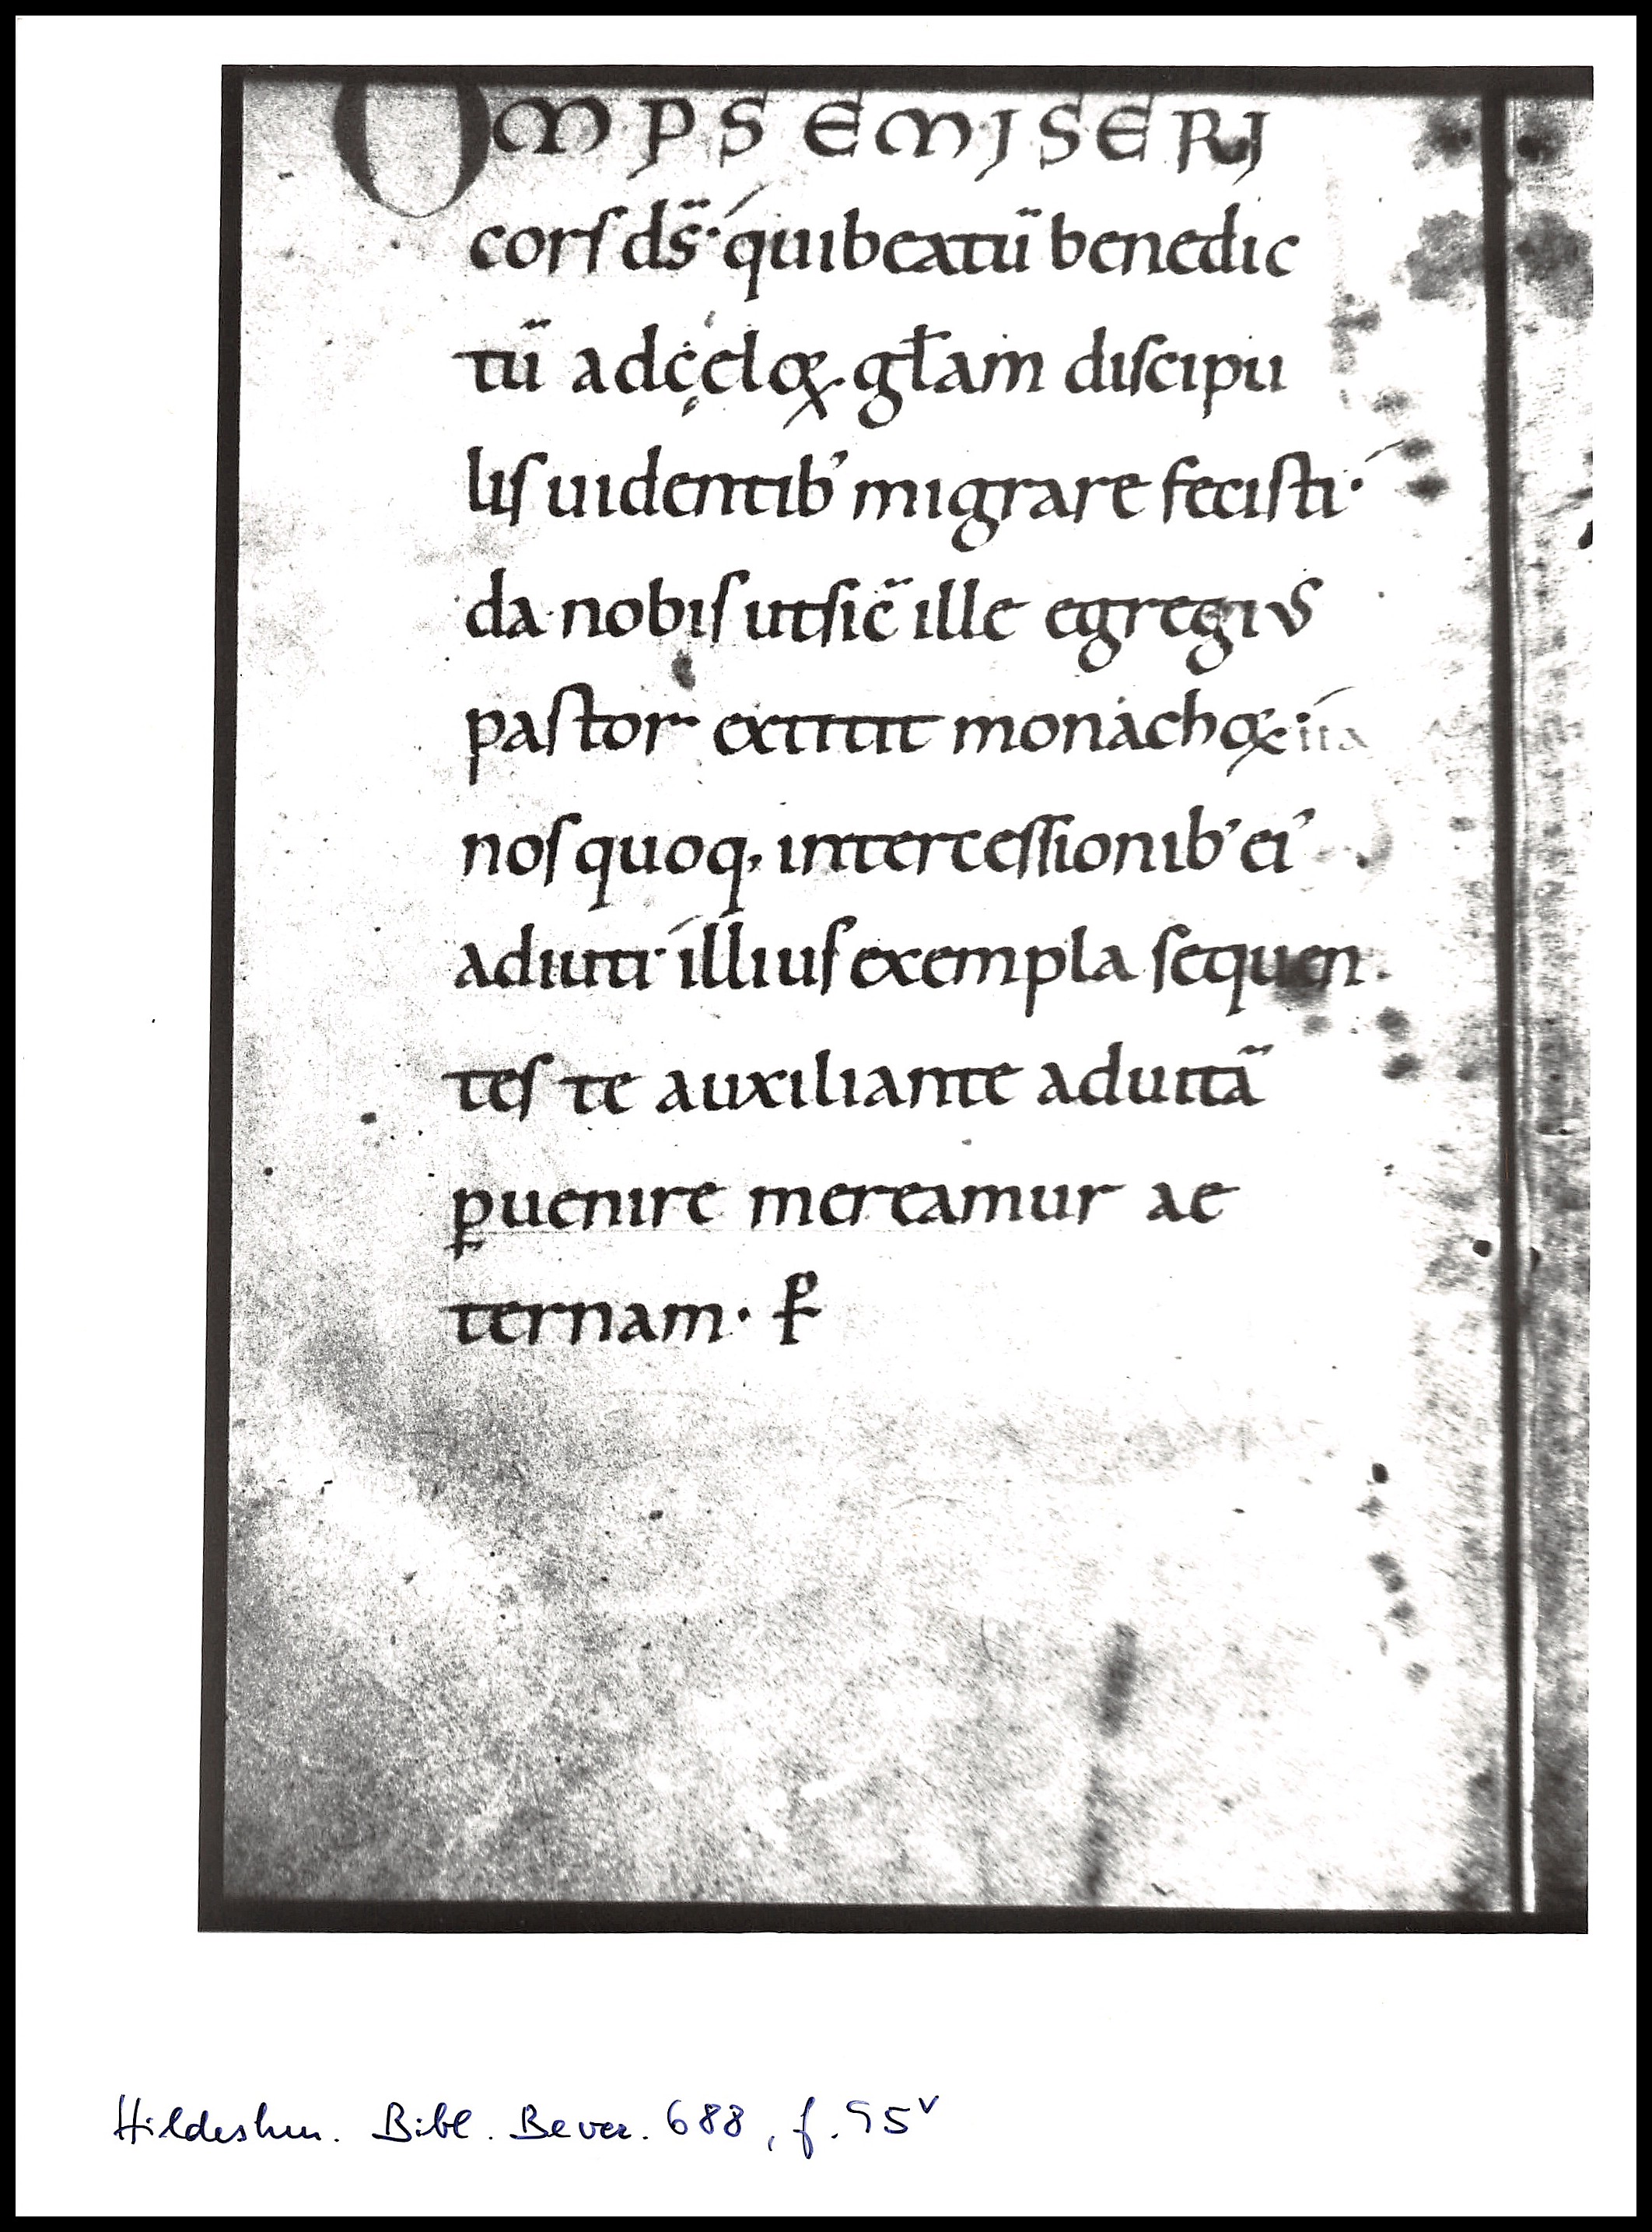 OMPS EMISERI
corſ ds̄· qui beatū benedic
tū adcęloꝝ gl̄am diſcipu
liſ uidentib' migrare feciſti·
da nobiſ ut ſic̄ ille egregius
paſtor extitit monachoꝝ· ita
noſ quoq, interceſſionib' ei'
adiuti· illiuſ exempla ſequen
teſ te auxiliante aduitā
ꝑuenire mereamur ae
ternam·
Hildeshm. Bibl. Bever. 688, f. 95v